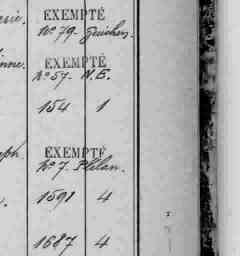 EXEMPTÉ
N° 79. Guichen.
EXEMPTÉ
N° 57. N.E.
154 1
EXEMPTÉ
N° 7. Plélan.
1591 4
1687 4